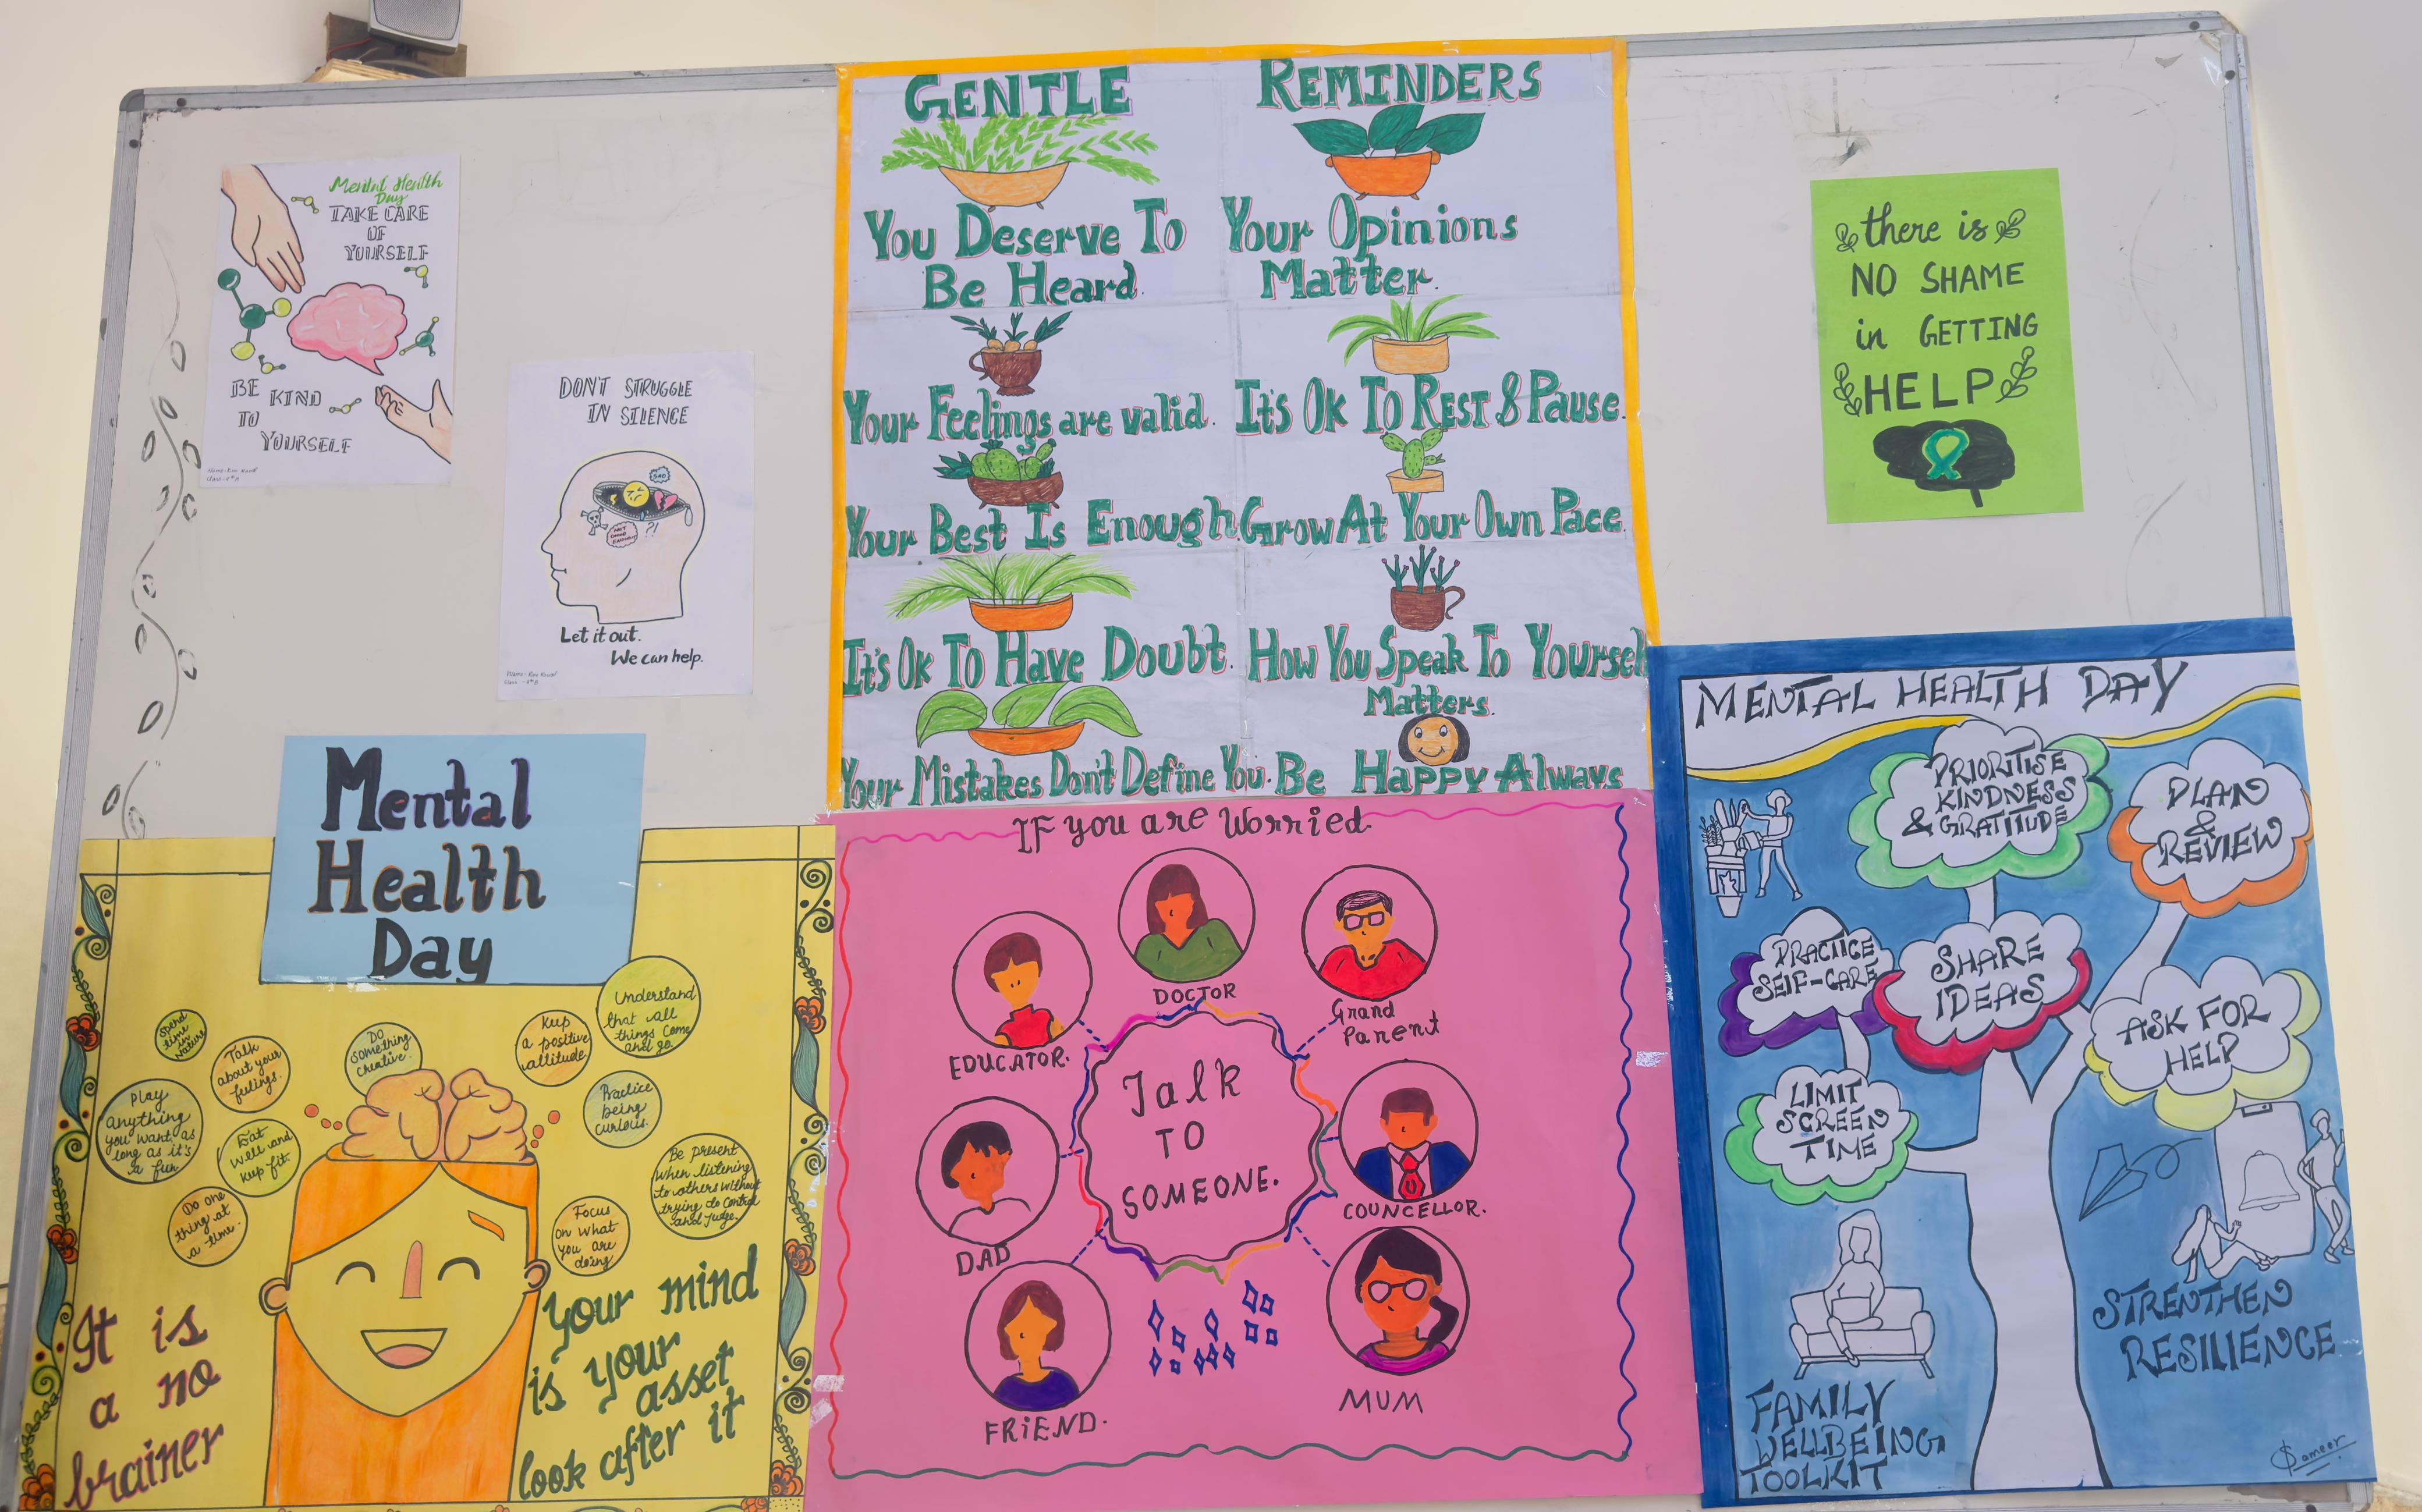 Mental Health
Day
TAKE CARE
OF
YOURSELF
BE KIND
TO
YOURSELF
DON'T STRUGGLE
IN SILENCE
SAD
NOT
GOOD
ENOUGH
?!
Let it out.
We can help.
GENTLE REMINDERS
You Deserve To
Be Heard.
Your Opinions
Matter.
Your Feelings are valid.
It's Ok To Rest & Pause.
Your Best Is Enough.
Grow At Your Own Pace.
It's Ok To Have Doubt.
How You Speak To Yourself
Matters.
Your Mistakes Don't Define You.
Be Happy Always
there is
NO SHAME
in GETTING
HELP
Mental
Health
Day
Spend
time
in
Nature
Talk
about your
feelings.
Do
something
creative.
Keep
a positive
attitude.
Understand
that all
things come
and go.
Play
anything
you want, as
long as it's
a fun.
Eat
well and
keep fit.
Practice
being
curious.
Do one
thing at
a time.
Focus
on what
you are
doing
Be present
when listening
to others without
trying to control
and judge.
It is
a no
brainer
your mind
is your
asset
look after it
IF you are Worried.
EDUCATOR.
DOCTOR
Grand
Parent
DAD
Talk
TO
SOMEONE.
COUNCELLOR.
FRiEND.
MUM
MENTAL HEALTH DAY
PRIORITISE
KINDNESS
& GRATITUDE
PLAN
&
REVIEW
PRACTICE
SELF-CARE
SHARE
IDEAS
ASK FOR
HELP
LIMIT
SCREEN
TIME
STRENTHEN
RESILIENCE
FAMILY
WELLBEING
TOOLKIT
Sameer